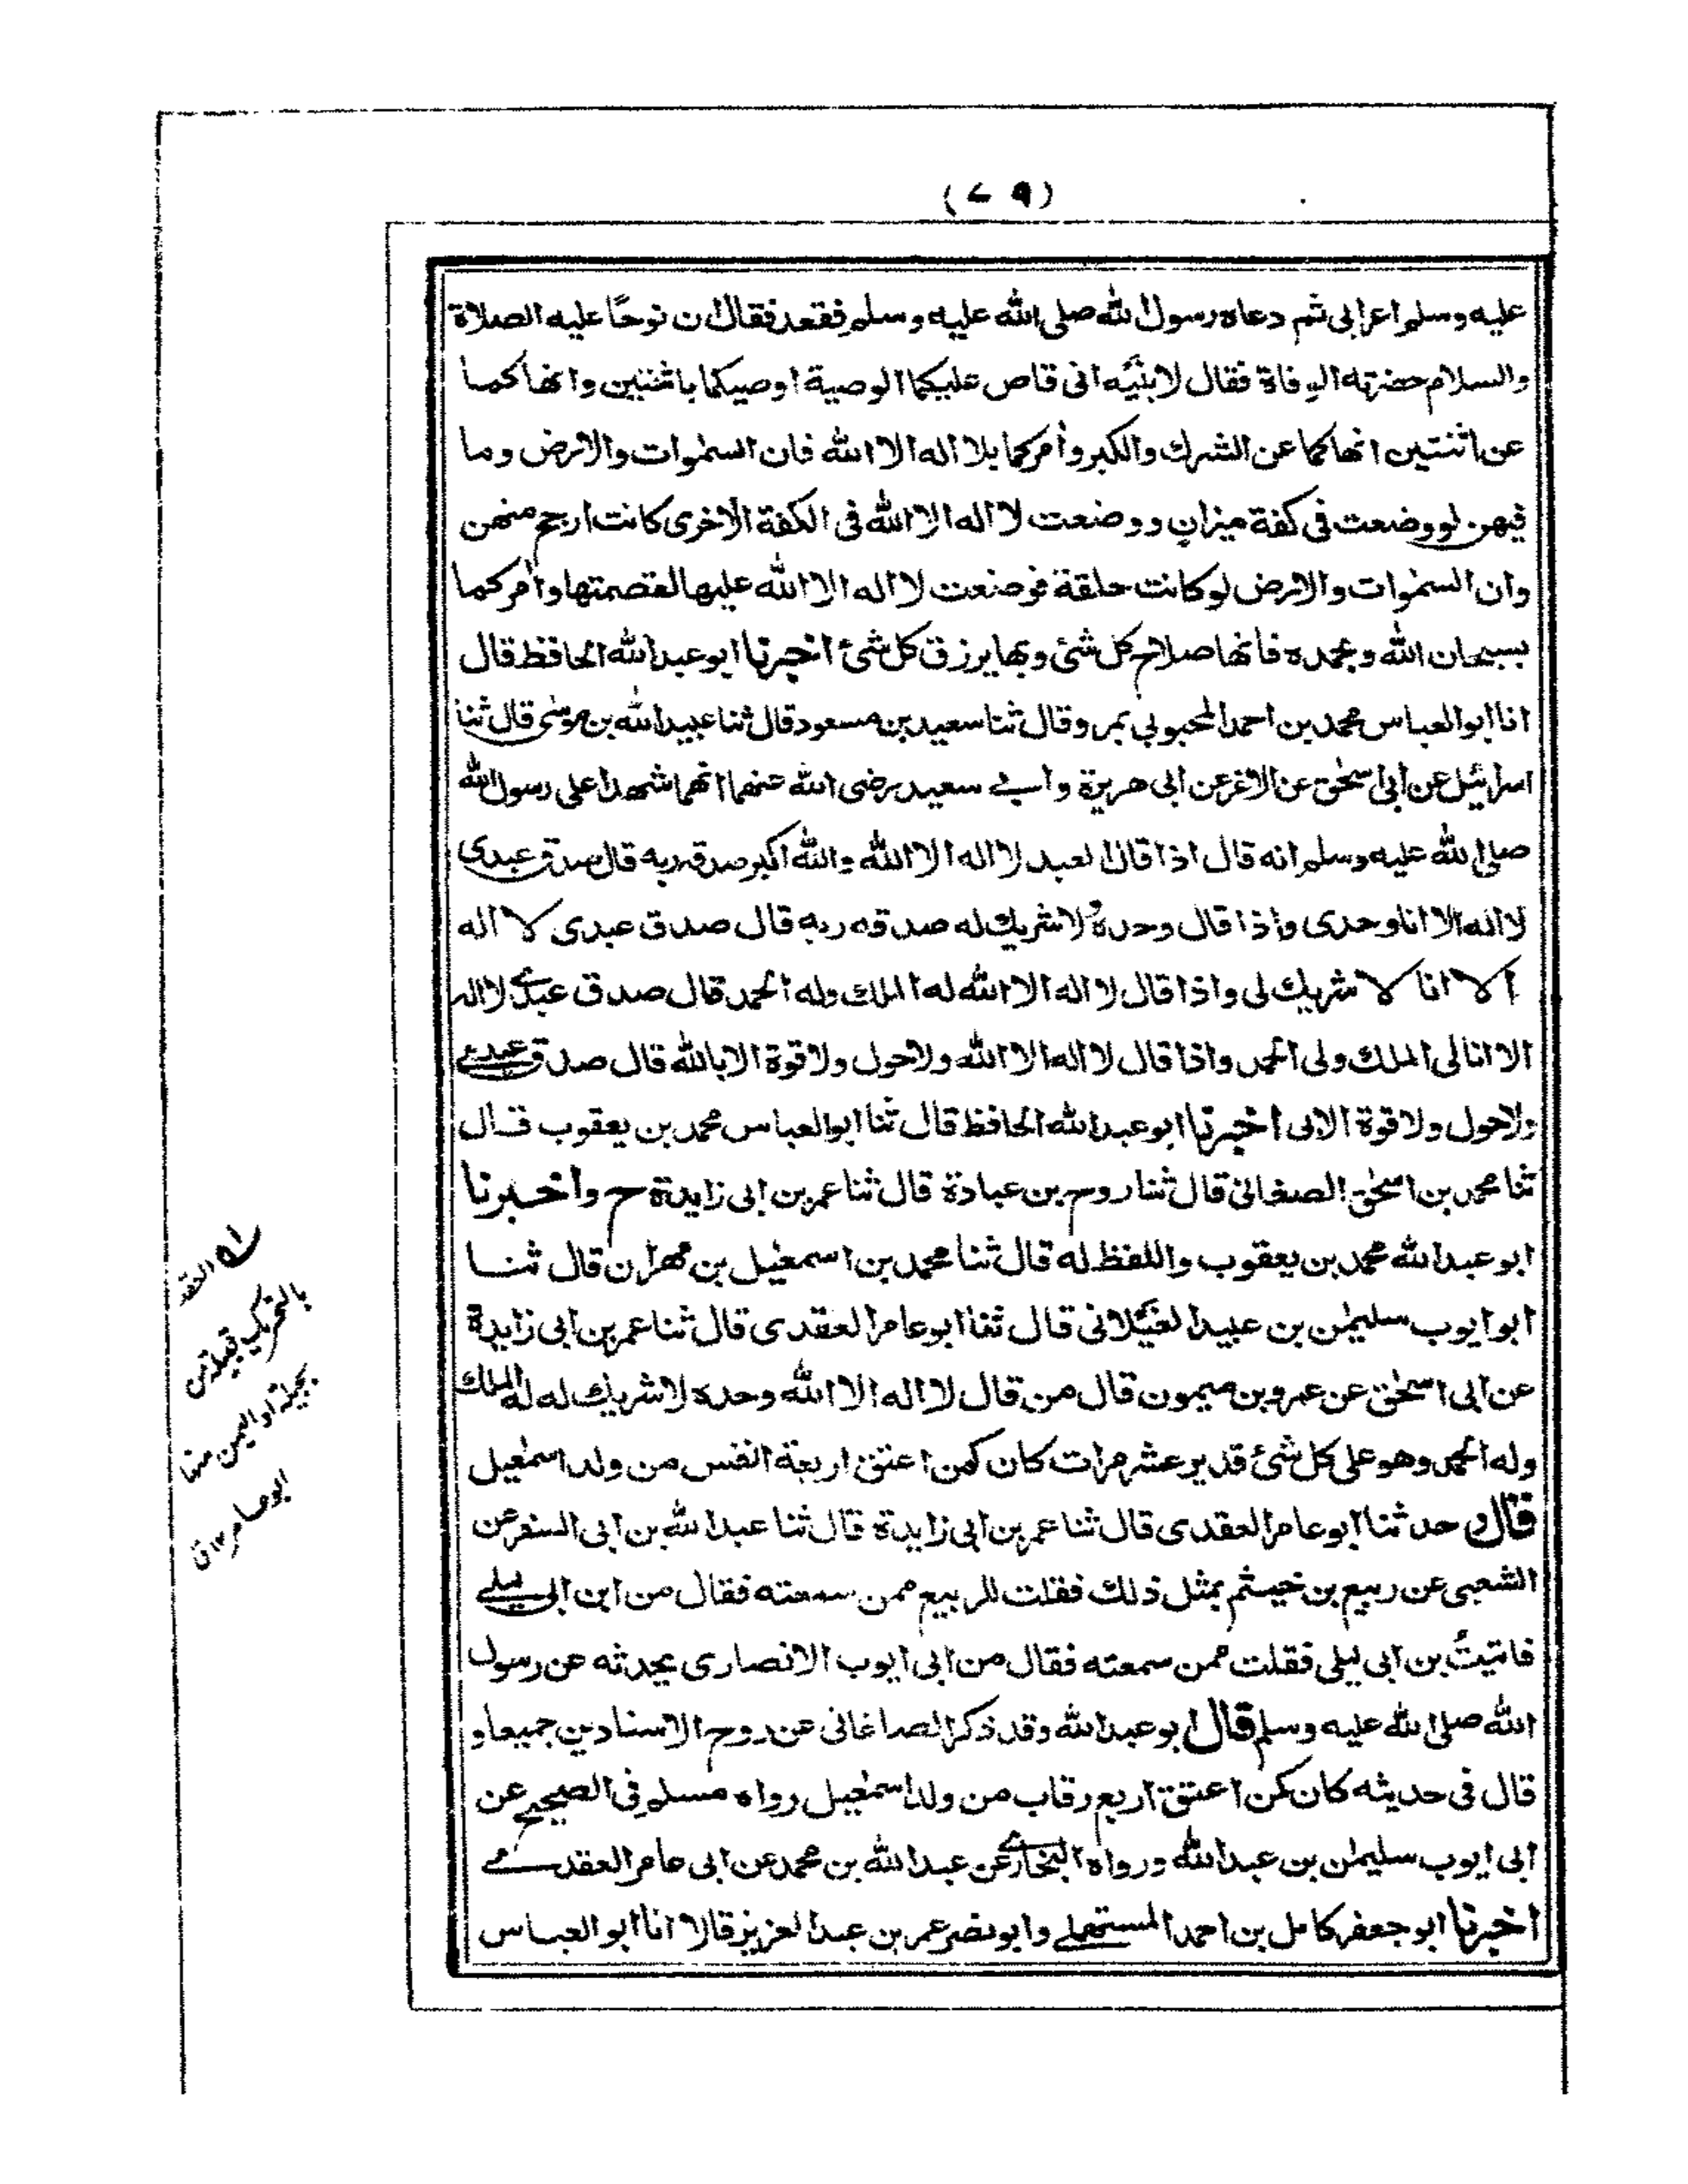 (٧٩)
عليه وسلم اعرابى ثم دعاه رسول الله صلى الله عليه وسلم فقعد فقال ان نوحًا عليه الصلاة
والسلام حضرته الوفاة فقال لابنيه انى قاص عليكما الوصية اوصيكما باثنتين وانهاكما
عن اثنتين انهاكما عن الشرك والكبر وأمركما بلا اله الا الله فان السمٰوات والارض وما
فيهن لو وضعت فى كفة ميزان ووضعت لا اله الا الله فى الكفة الاخرى كانت ارجح منهن
وان السمٰوات والارض لو كانت حلقة فوضعت لا اله الا الله عليها لقصمتها وأمركما
بسبحان الله وبحمده فانها صلاح كل شئ وبها يرزق كل شئ اخبرنا ابو عبد الله الحافظ قال
انا ابو العباس محمد بن احمد المحبوبي بمرو قال ثنا سعيد بن مسعود قال ثنا عبيد الله بن موسٰى قال ثنا
اسرائيل عن أبى اسحٰق عن الاغر عن ابى هريرة وابے سعيد رضى الله عنهما انهما شهدا على رسول الله
صلى الله عليه وسلم انه قال اذا قال العبد لا اله الا الله والله اكبر صدقه ربه قال صدق عبدى
لا اله الا انا وحدى واذا قال وحده لا شريك له صدقه ربه قال صدق عبدى لا اله
الا انا لا شريك لى واذا قال لا اله الا الله له الملك وله الحمد قال صدق عبدے لا اله
الا انا لى الملك ولى الحمد واذا قال لا اله الا الله ولا حول ولا قوة الا بالله قال صدق عبدے
ولا حول ولا قوة الا بى اخبرنا ابو عبد الله الحافظ قال ثنا ابو العباس محمد بن يعقوب قال
ثنا محمد بن اسحٰق الصغانى قال ثنا روح بن عبادة قال ثنا عمر بن ابى زايدة ح واخبرنا
ابو عبد الله محمد بن يعقوب واللفظ له قال ثنا محمد بن اسمعٰيل بن مهران قال ثنا
ابو ايوب سليمٰن بن عبيد الغيلانى قال ثنا ابو عامر العقدى قال ثنا عمر بن ابى زايدة
عن ابى اسحٰق عن عمرو بن ميمون قال من قال لا اله الا الله وحده لا شريك له له الملك
وله الحمد وهو على كل شئ قدير عشر مرات كان كمن اعتق اربعة انفس من ولد اسمٰعيل
قال وحدثنا ابو عامر العقدى قال ثنا عمر بن ابى زايدة قال ثنا عبد الله بن ابى السفر عن
الشعبى عن ربيع بن خيثم بمثل ذلك فقلت للربيع ممن سمعته فقال من ابن ابى ليلے
فاتيتُ بن ابى ليلى فقلت ممن سمعته فقال من ابى ايوب الانصارى يحدثه عن رسول
الله صلى الله عليه وسلم قال ابو عبد الله وقد ذكر الصاغانى عن روح الاسنادين جميعا و
قال فى حديثه كان كمن اعتق اربع رقاب من ولد اسمٰعيل رواه مسلم فى الصحيح عن
ابى ايوب سليمٰن بن عبد الله ورواه البخارے عن عبد الله بن محمد عن ابى عامر العقدے
اخبرنا ابو جعفر كامل بن احمد المستملے وابو نصر عمر بن عبد العزيز قالا انا ابو العباس
بالتحريك قبيلة من
بجيلة او اليمن منها
ابو عامر